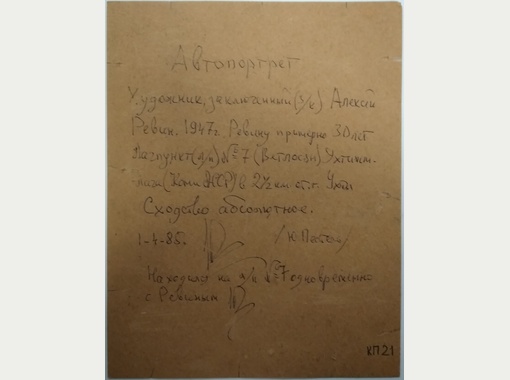 Автопортрет
Художник, заключенный (з/к) Алексей
Ревин. 1947г. Ревину примерно 30 лет
Лагпункт (л/п) №7 (Ветлосян)
(Коми АССР) в 2½ км от г. Ухты
Сходство абсолютное.
1-4-85.
Находился на л/п №7 одновременно
с Ревиным
КП21